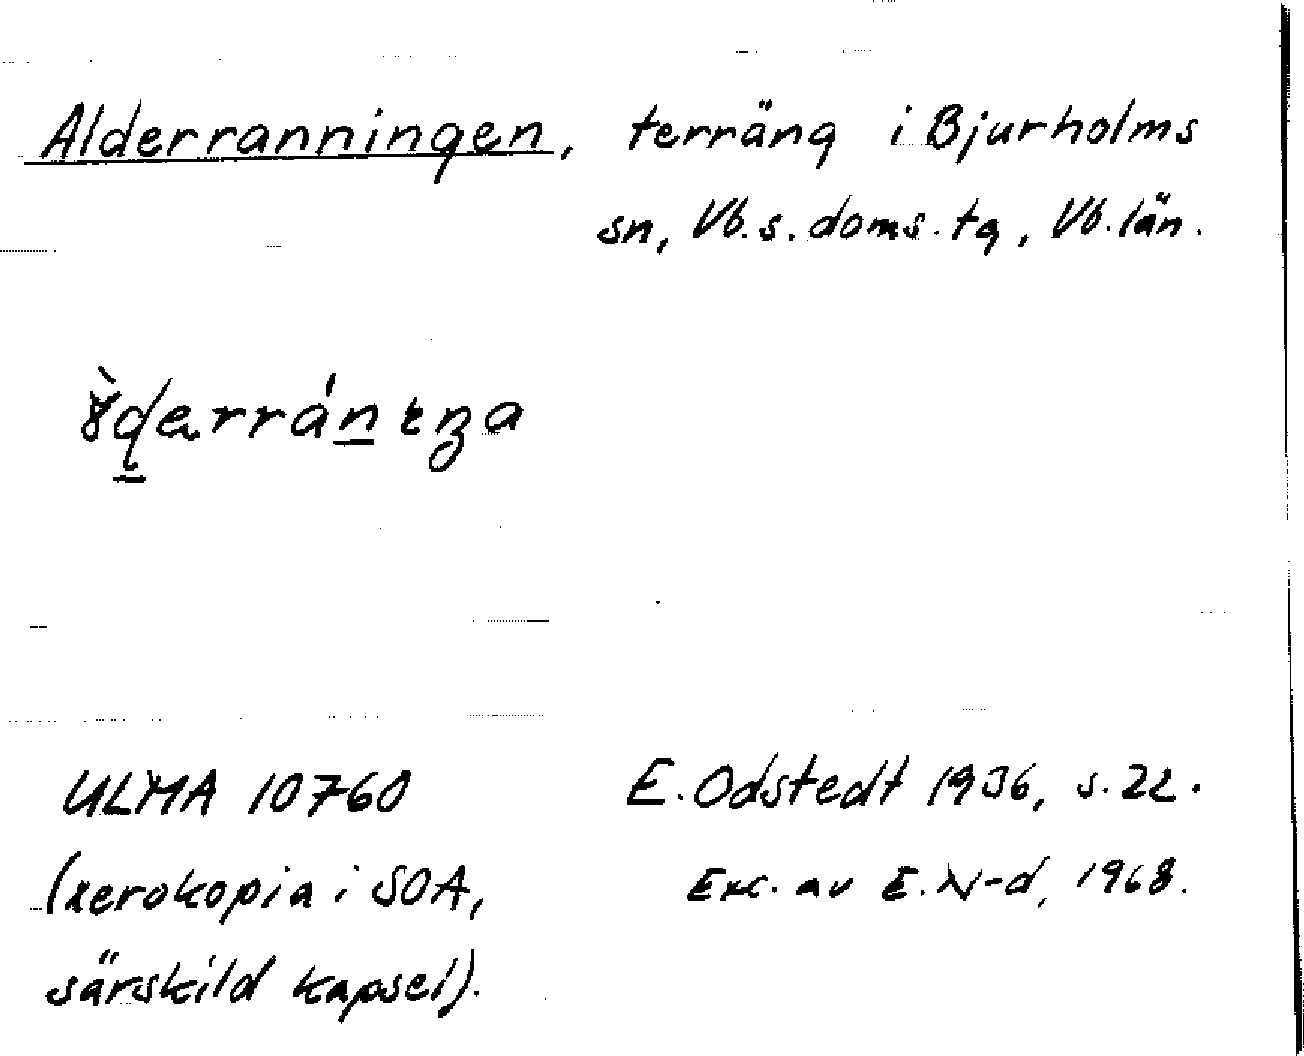 Alderranningen, terräng i Bjurholms
sn, Vb. s. doms. tg, Vb. län.
ULMA 10760 E. Odstedt 1936, s. 22.
(xerokopia i SOA, Exc. av E. N-d, 1968.
särskild kapsel).